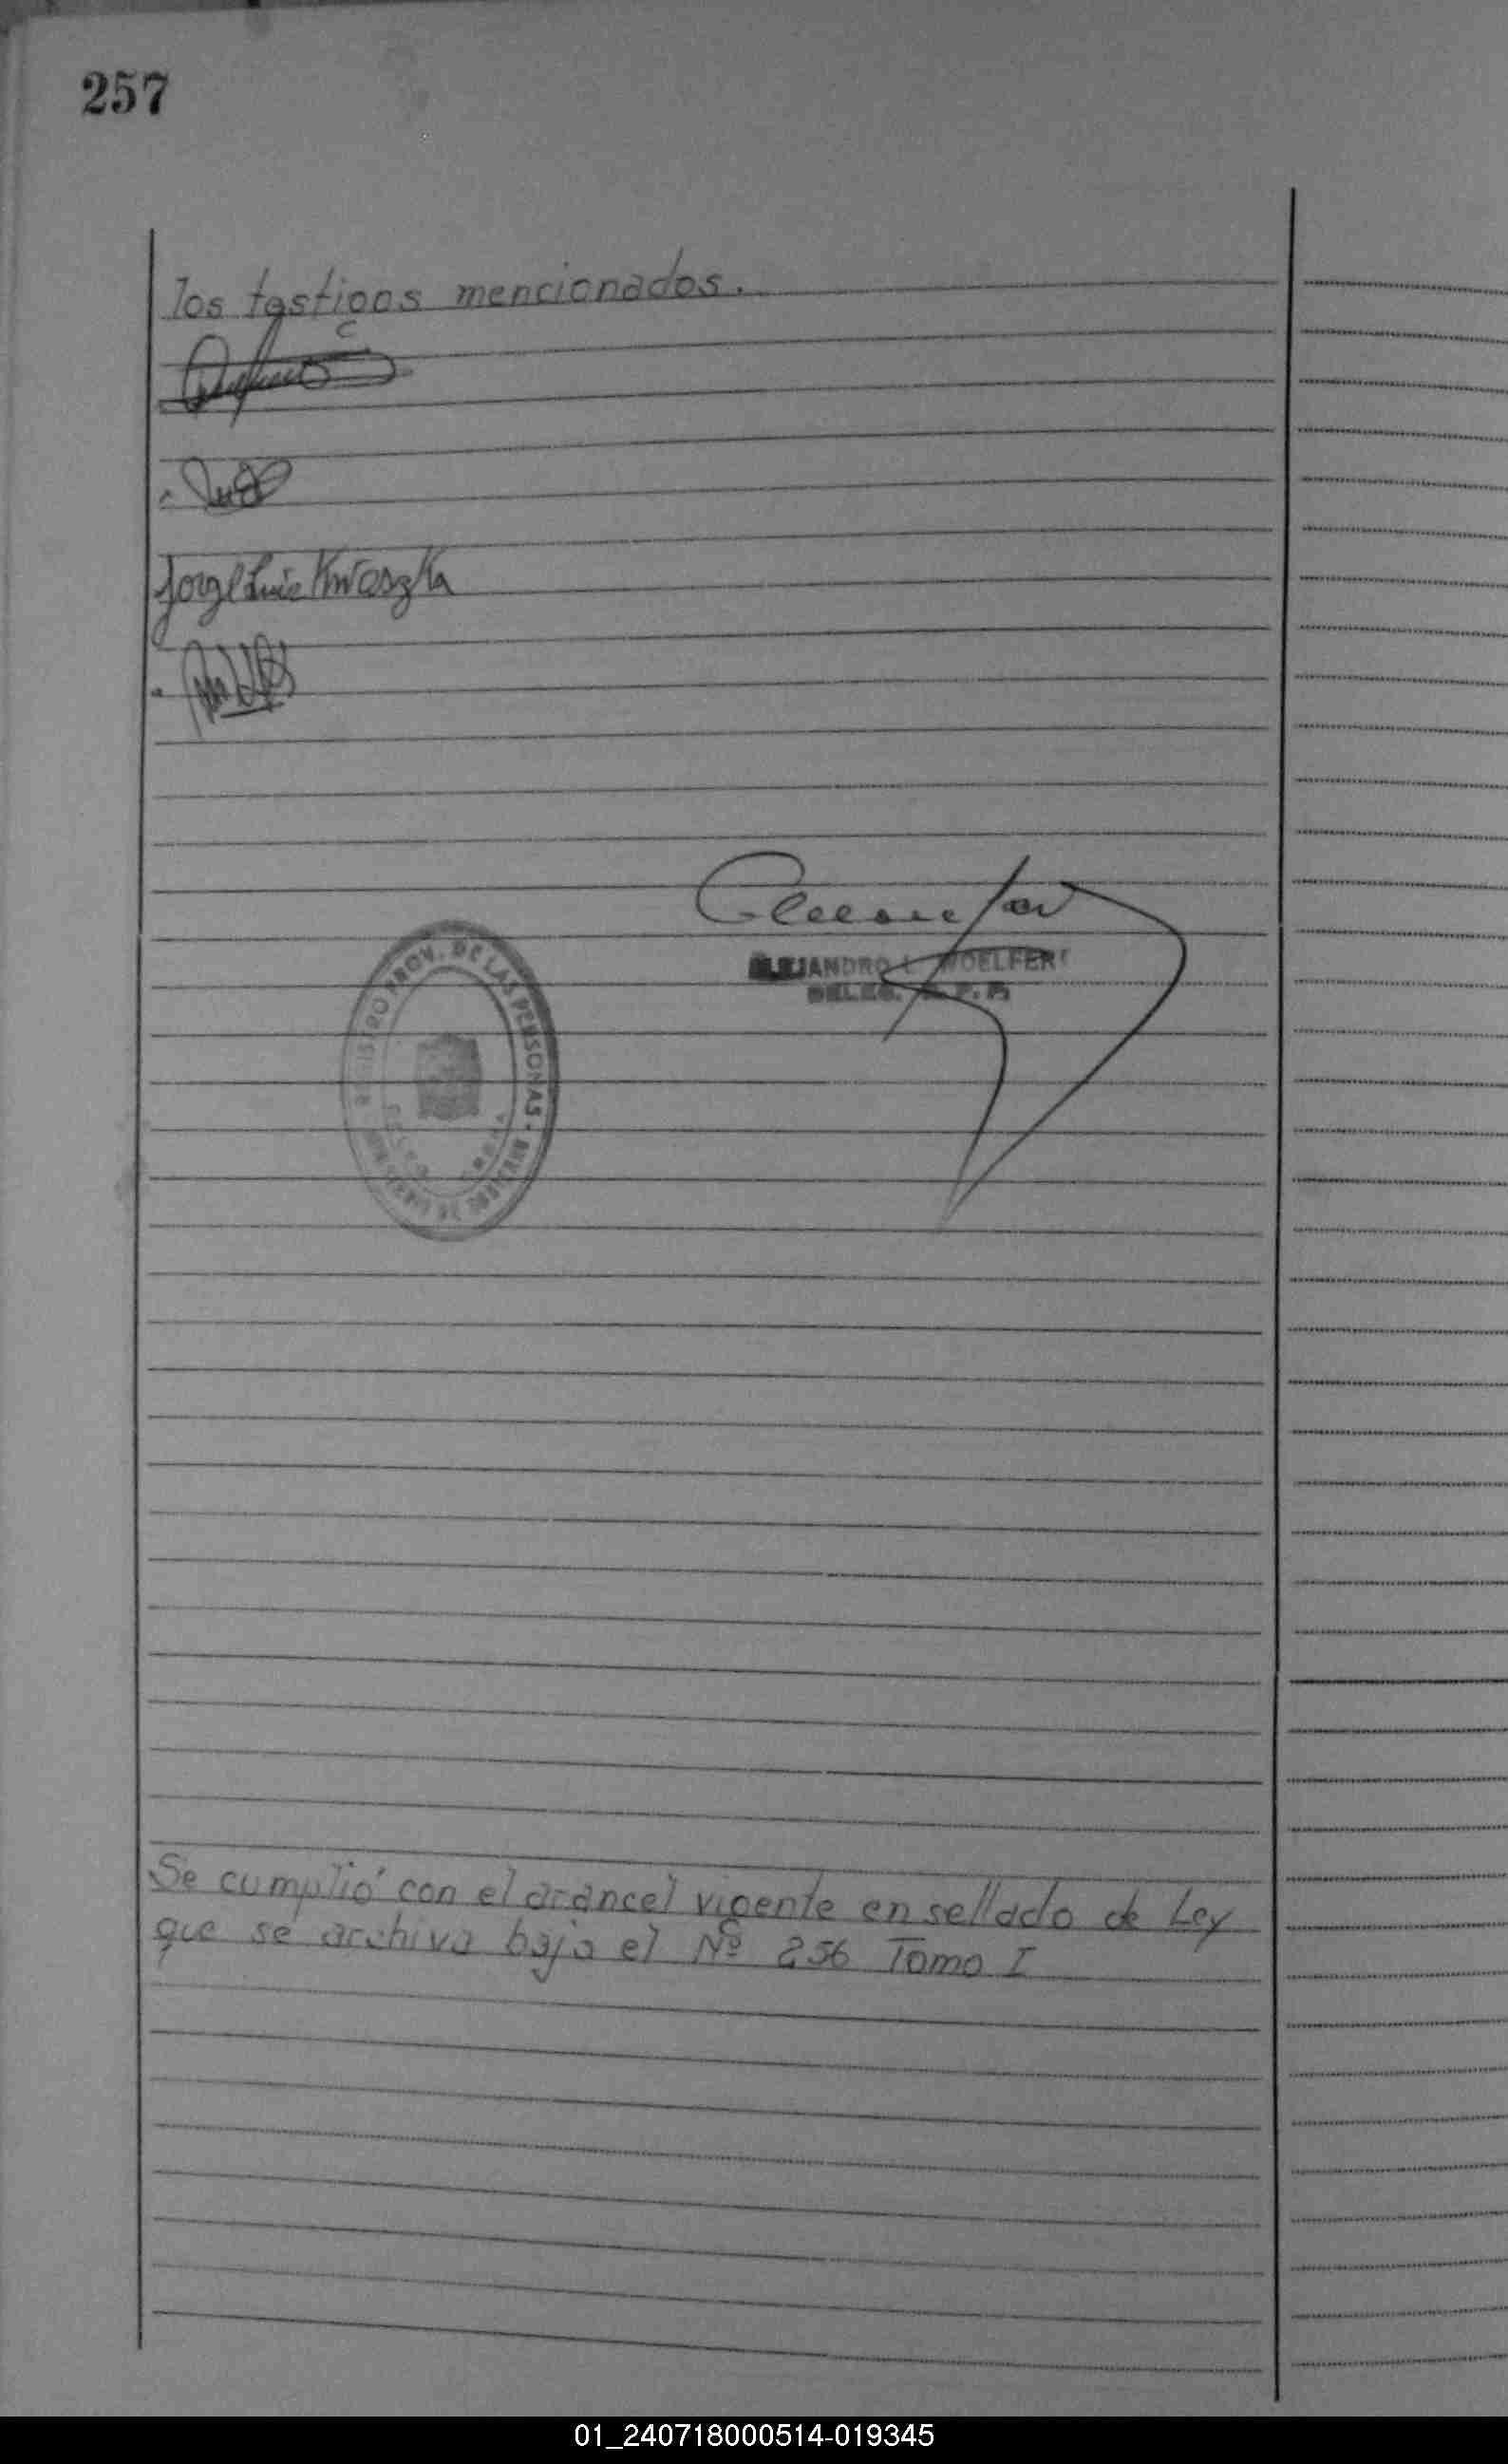 257
los testigos mencionados.
Jorge Luis Kwaszka
REGISTRO PROV. DE LAS PERSONAS
ALEJANDRO L. WOELFERT
DELEG. R. P. P.
Se cumplió con el arancel vigente en sellado de Ley
que se archiva bajo el Nº 256 Tomo I
01_240718000514-019345